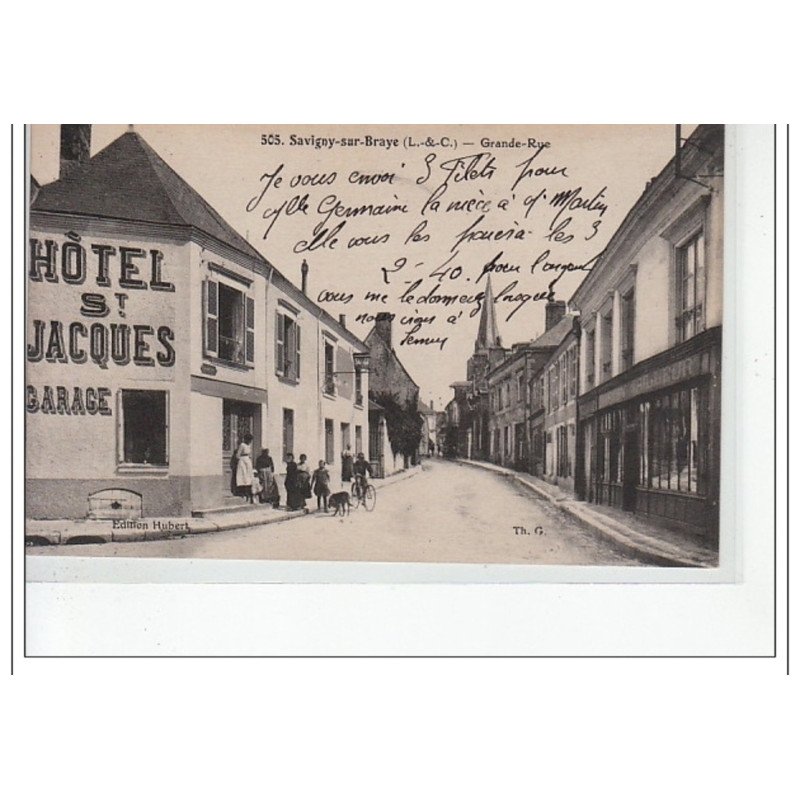 505. Savigny-sur-Braye (L.-&-C.) — Grande-Rue
Je vous envoi 3 filets pour
Mlle Germaine la nièce à Mr Martin
Elle vous les paiera les 3
2-40. pour l'argent
vous me le
nous irons à
HÔTEL
ST
JACQUES
GARAGE
Edition Hubert
Th. G.